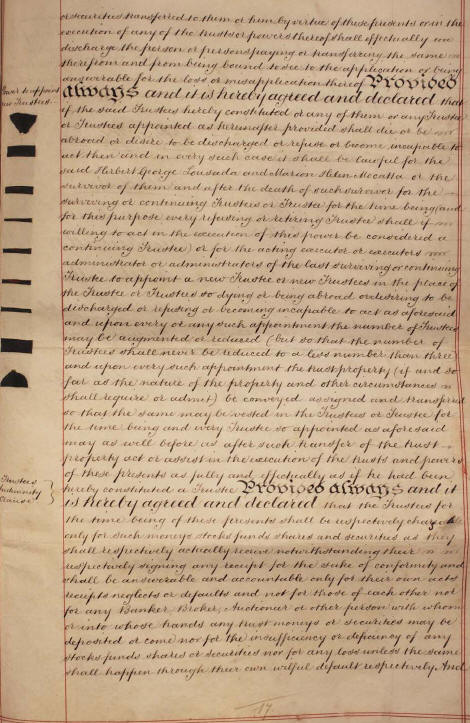 or securities transferred to them or him by virtue of these presents or in the
execution of any of the trusts or powers thereof shall effectually
discharge the person or persons paying or transferring the same
therefrom and from being bound to see to the application or being
answerable for the loss or misapplication thereof Provided
Power to appoint
new Trustees.
always and it is hereby agreed and declared that
if the said Trustees hereby constituted or any of them or any Trustee
or Trustees appointed as hereinafter provided shall die or be
abroad or desire to be discharged or refuse or become incapable to
act then and in every such case it shall be lawful for the
said Herbert George Lousada and Marion Helen Mocatta or the
survivor of them and after the death of such survivor for the
surviving or continuing Trustees or Trustee for the time being (and
for this purpose every refusing or retiring Trustee shall if
willing to act in the execution of this power be considered a
continuing Trustee) or for the acting executor or executors
administrator or administrators of the last surviving or continuing
Trustee to appoint a new Trustee or new Trustees in the place of
the Trustee or Trustees so dying or being abroad or desiring to be
discharged or refusing or becoming incapable to act as aforesaid
and upon every or any such appointment the number of Trustees
may be augmented or reduced (but so that the number of
Trustees shall never be reduced to a less number than three
and upon every such appointment the trust property (if and so
far as the nature of the property and other circumstances
shall require or admit) be conveyed assigned and transferred
so that the same may be vested in the Trustees or Trustee for
the time being and every Trustee so appointed as aforesaid
may as well before as after such transfer of the trust
property act or assist in the execution of the trusts and powers
of these presents as fully and effectually as if he had been
Trustees
Indemnity
Clause
hereby constituted a Trustee Provided always and it
is hereby agreed and declared that the Trustees for
the time being of these presents shall be respectively chargeable
only for such moneys stocks funds shares and securities as they
shall respectively actually receive notwithstanding their
respectively signing any receipt for the sake of conformity and
shall be answerable and accountable only for their own acts
receipts neglects or defaults and not for those of each other nor
for any Banker Broker, Auctioneer or other person with whom
or into whose hands any trust moneys or securities may be
deposited or come nor for the insufficiency or deficiency of any
stocks funds shares or securities nor for any loss unless the same
shall happen through their own wilful default respectively And
17